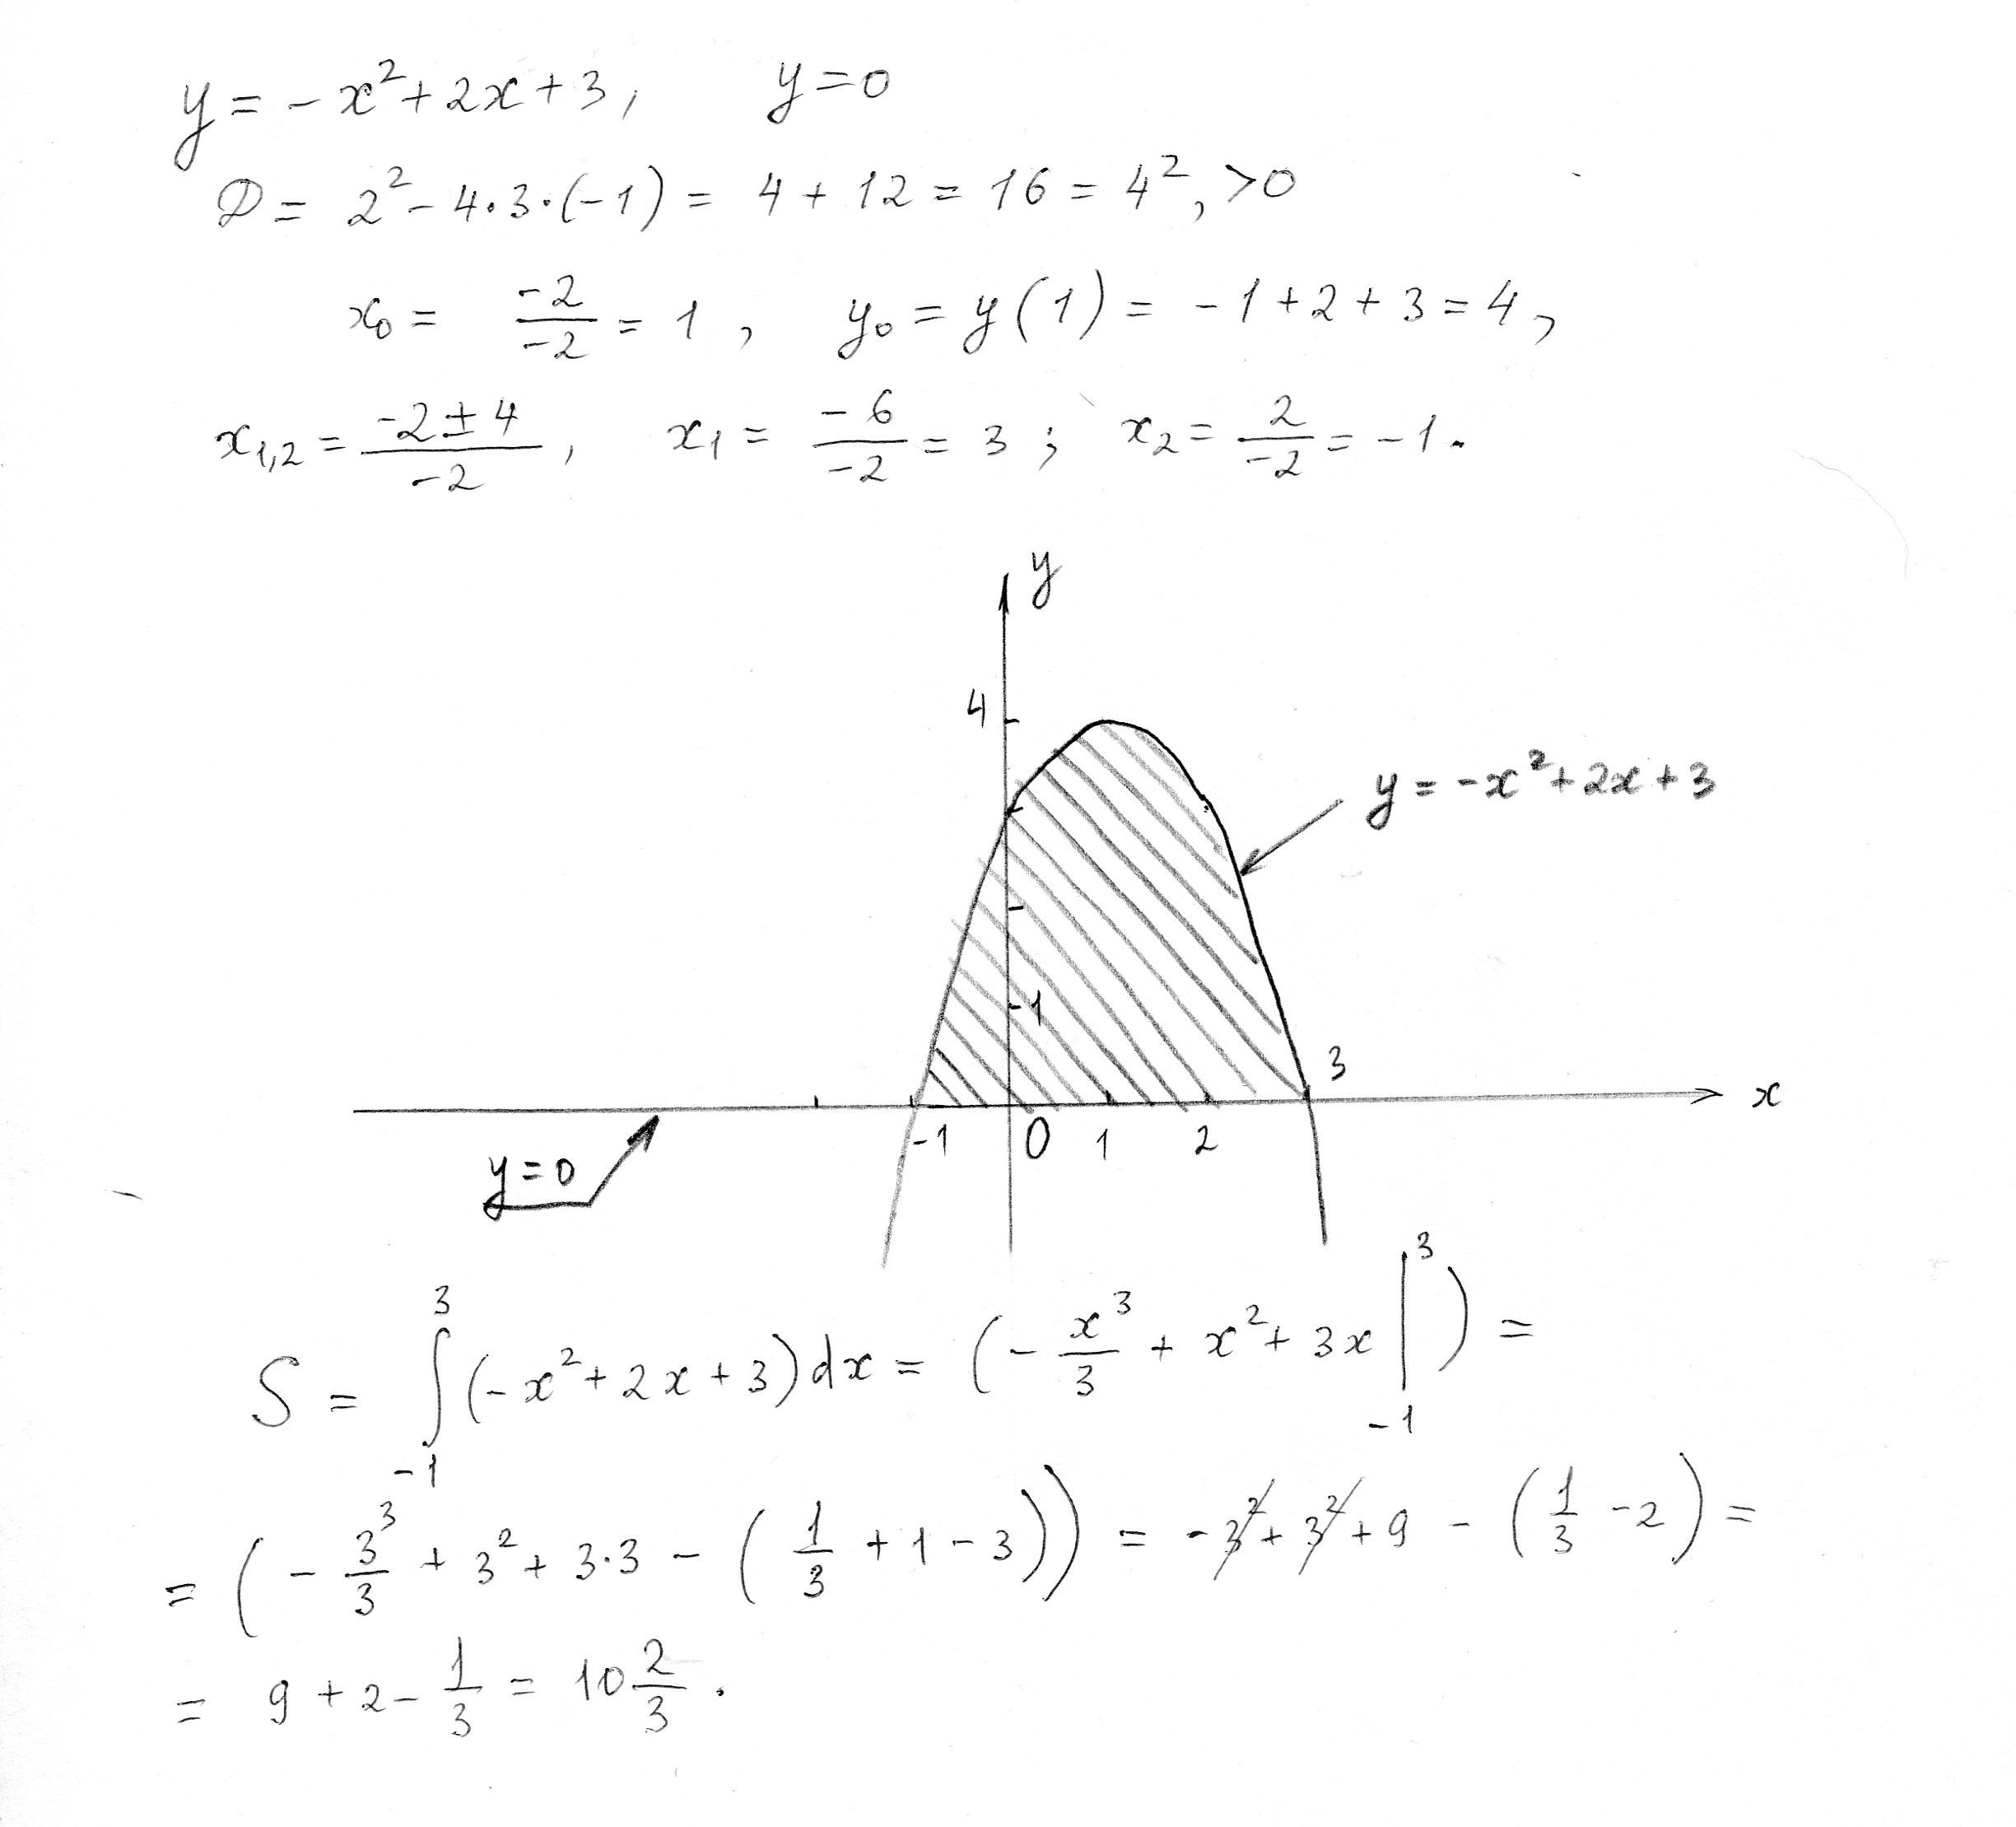 y = -x²+2x+3, y=0
D = 2²-4·3·(-1) = 4+12 = 16 = 4², >0
x₀ = -2/-2 = 1, y₀ = y(1) = -1+2+3=4,
x₁,₂ = (-2±4)/-2, x₁ = -6/-2 = 3; x₂ = 2/-2 = -1.
y
4
y = -x²+2x+3
1
3
x
-1 0 1 2
y=0
S = ∫₋₁³ (-x²+2x+3)dx = (-x³/3 + x²+3x |₋₁³) =
= (-3³/3 + 3²+3·3 - (1/3 +1-3)) = -3²+3²+9 - (1/3 -2) =
= 9+2-1/3 = 10 2/3.